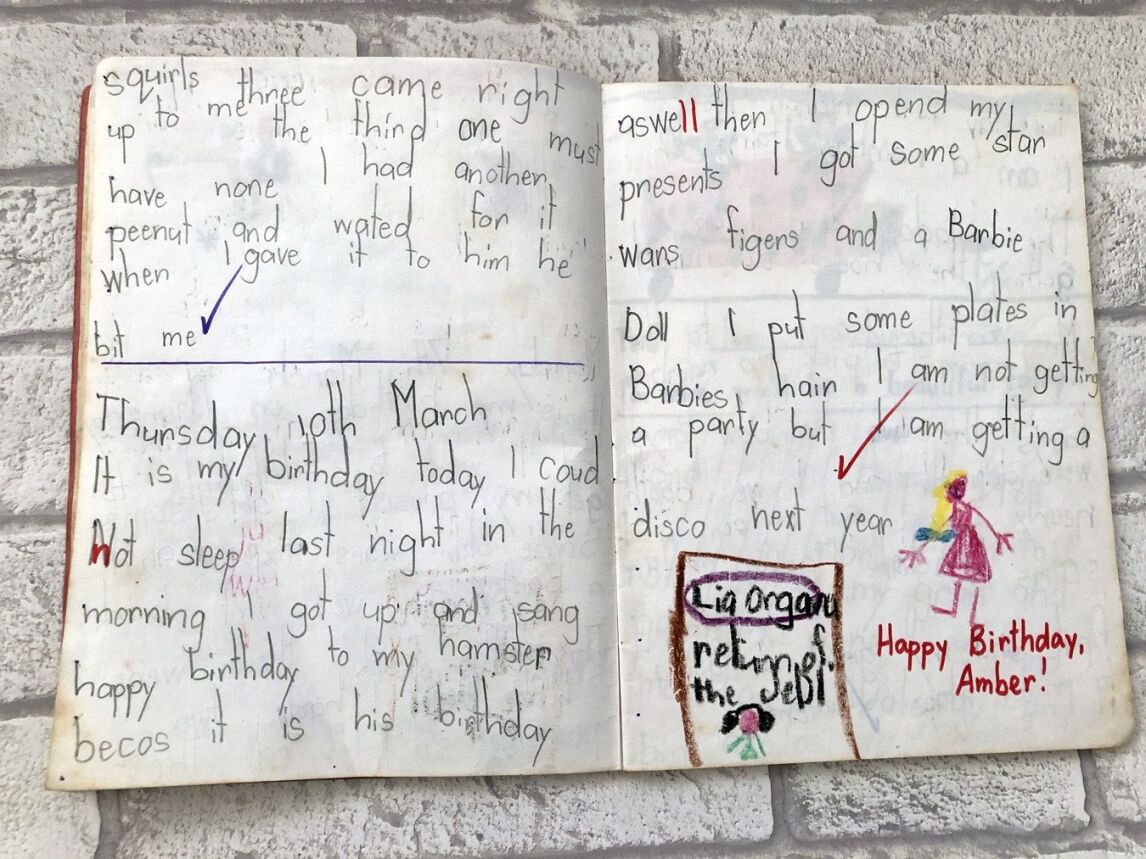 squirls three came right
up to me the third one must
have none I had another
peenut and wated for it
when I gave it to him he
bit me
Thursday 10th March
It is my birthday today I coud
not sleep last night in the
morning I got up and sang
happy birthday to my hamster
becos it is his birthday
aswell then I opend my
presents I got some star
wars figers and a Barbie
Doll I put some plates in
Barbies hair I am not getting
a party but I am getting a
disco next year
Lia Organa
return of
the JeDI
Happy Birthday,
Amber!